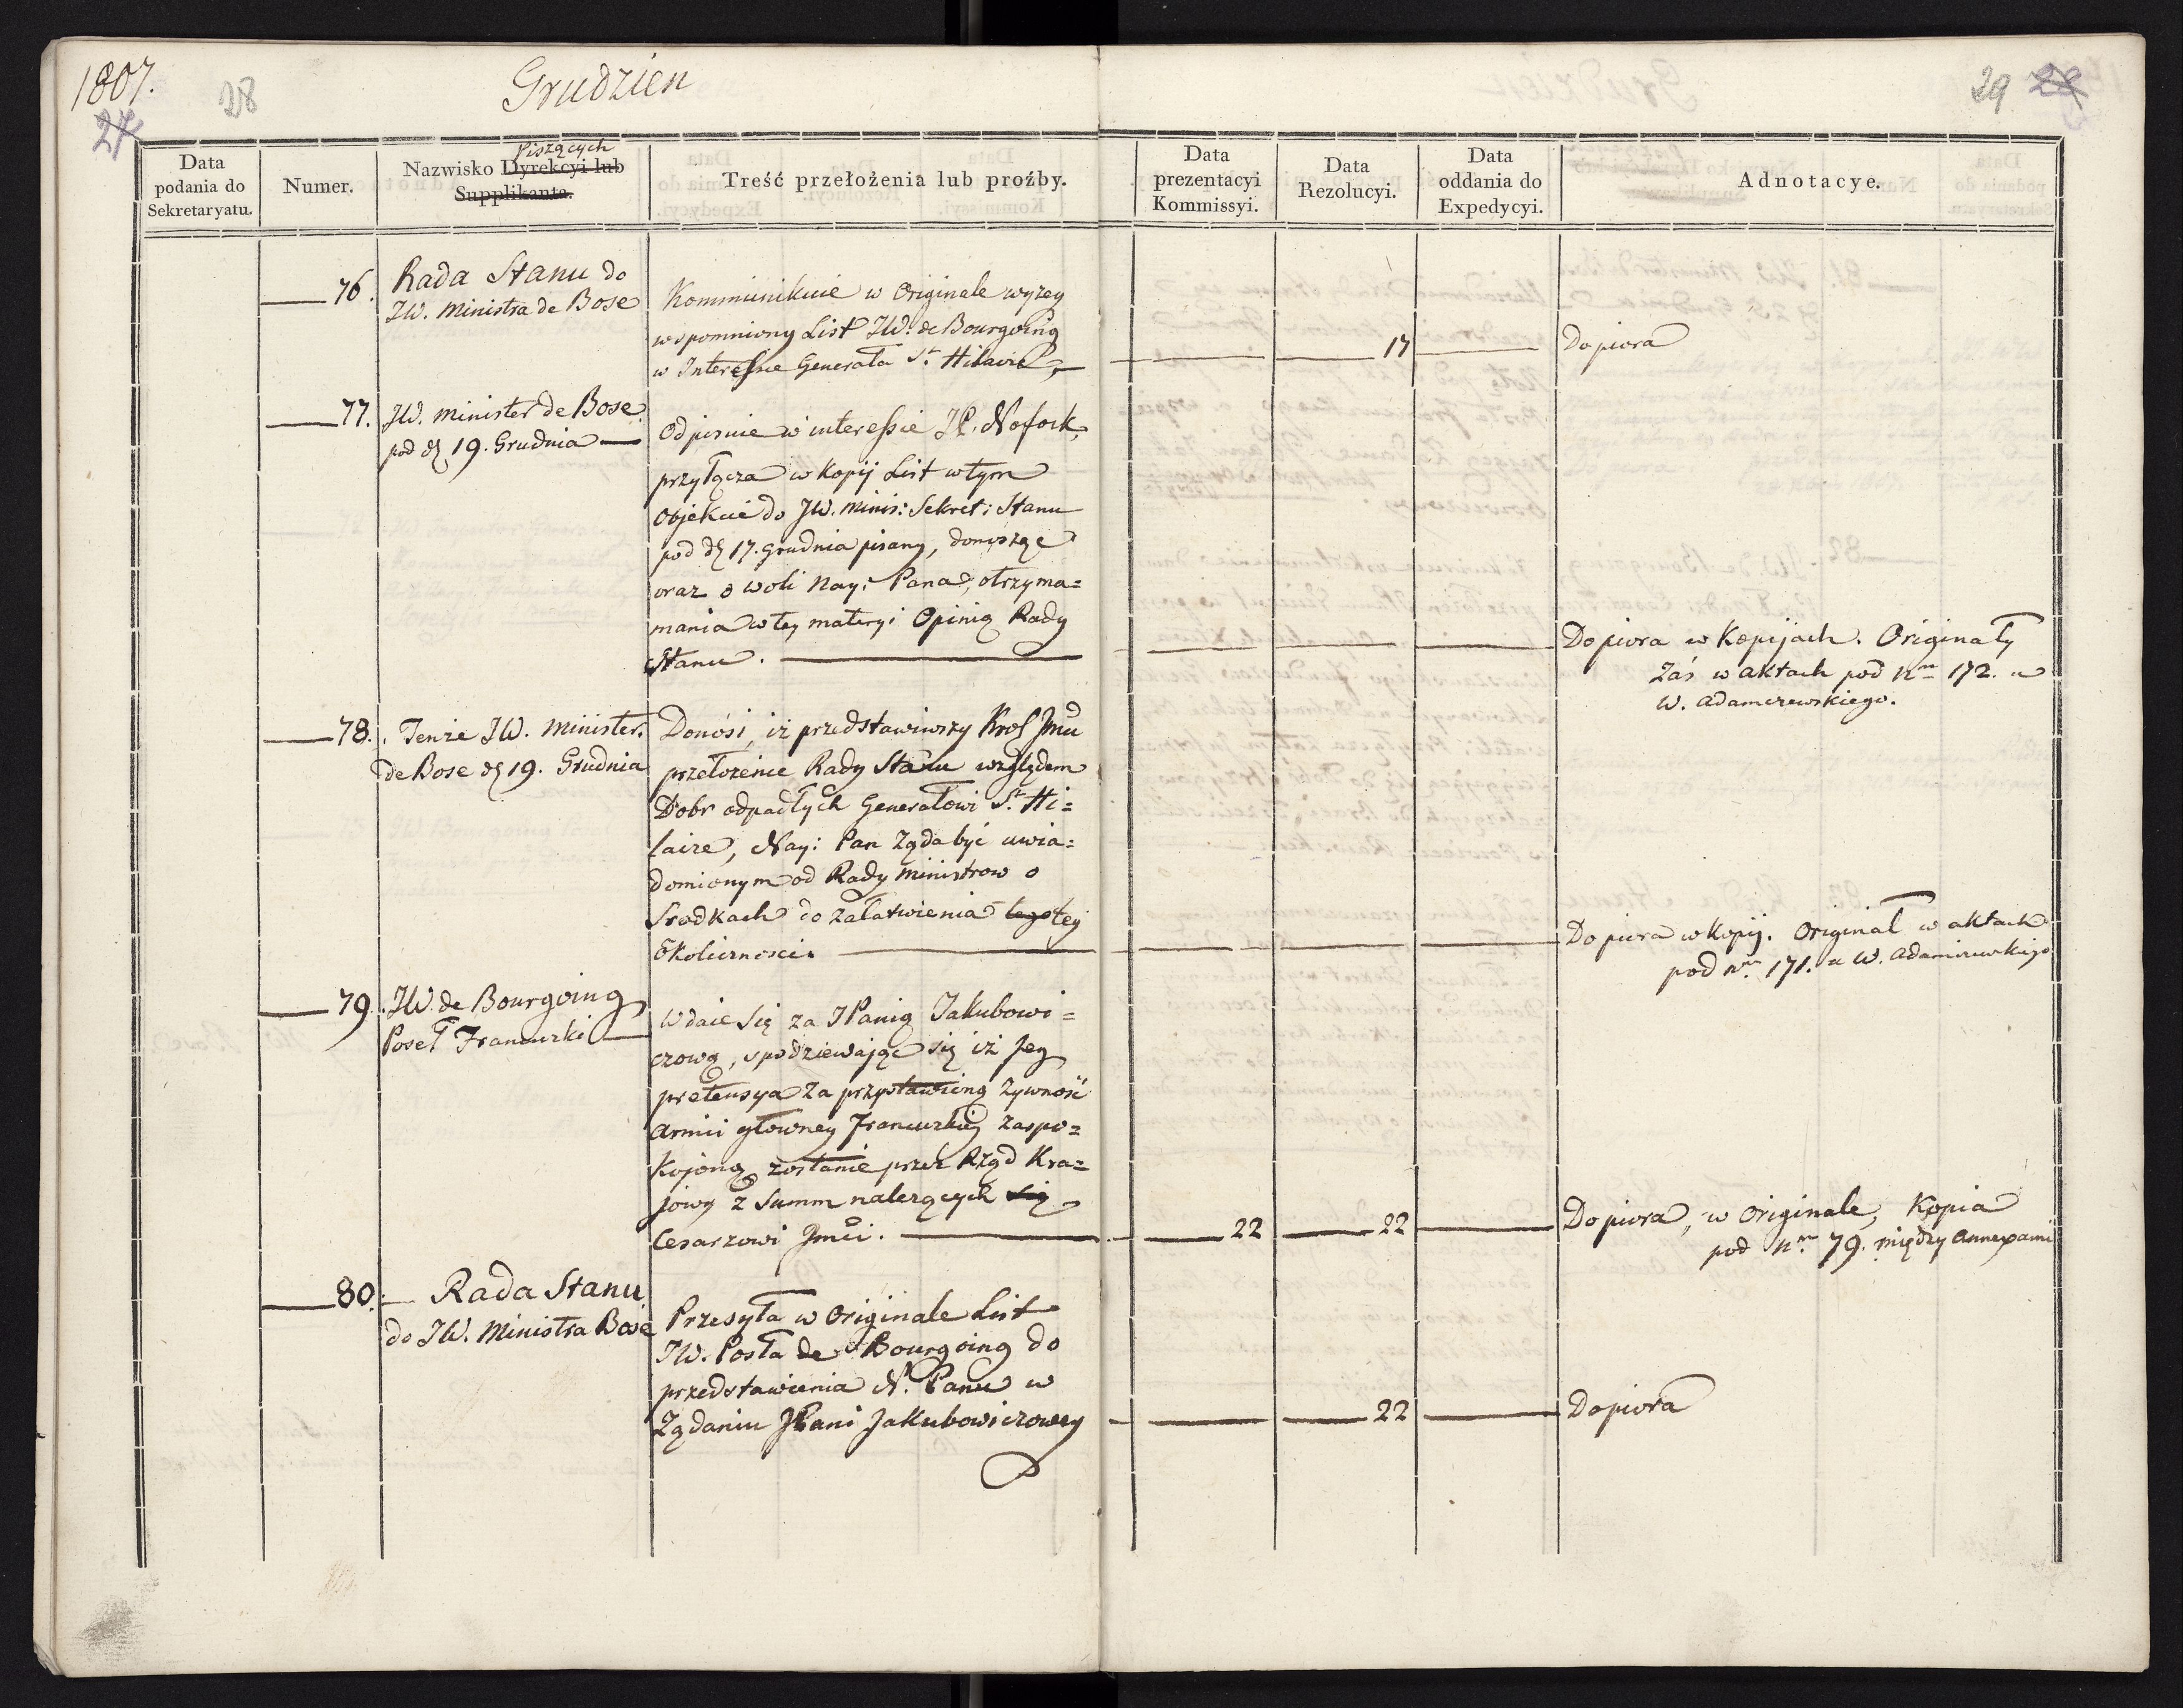 1807.
27
28
Grudzien
29 28
Data podania do Sekretaryatu.
Numer.
Nazwisko Dyrekcyi lub Supplikanta.
Piszących
Treść przełożenia lub proźby.
Data prezentacyi Kommissyi.
Data Rezolucyi.
Data oddania do Expedycyi.
Adnotacye.
76.
Rada Stanu do
JW. Ministra de Bose
Kommunikuie w Originale wyzey
wspomniony List JW. de Bourgoing
w Interessie Generała St. Hilaire,
17
Do piora
77.
JW. Minister de Bose
pod d. 19. Grudnia
Odpisuie w interessie JP. Nofok,
przyłącza w Kopij List w tym
Objekcie do JW. Minis: Sekret: Stanu
pod d. 17. Grudnia pisany, donosząc
oraz o woli Nay: Pana, otrzyma=
mania w tey materyi Opinią Rady
Stanu.
Do piora w Kopijach. Originały
Zaś w aktach pod Nm 172. u
W. Adamczewskiego.
78.
Tenże JW. Minister
de Bose d. 19. Grudnia
Donosi, iż przedstawiwszy Krol Jmci
przełożenie Rady Stanu względem
Dobr odpadłych Generałowi St. Hi=
laire, Nay: Pan Ząda być uwia=
domionym od Rady Ministrow o
Srodkach do załatwienia tego tey
Okoliczności.
Do piora w kopij. Originał w aktach
pod Nm 171. u W. Adamczewskiego
79.
JW. de Bourgoing
Poseł Francuzki
Wdaie Się za JPanią Jakubowi=
czową, spodziewając się iż Jey
pretensya za przystawioną Zywność
Armii głowney Francuzkiey zaspo=
kojoną zostanie przez Rząd Kra=
jowy z Summ nalezących się
Cesarzowi Jmci.
22
22
Do piora, w Originale, Kopia
pod Nm 79. między Annexami
80.
Rada Stanu
do JW. Ministra Bose
Przesyła w Originale List
JW. Posła de Bourgoing do
przedstawienia N. Panu w
Ządaniu JPani Jakubowiczowey
22
Do piora